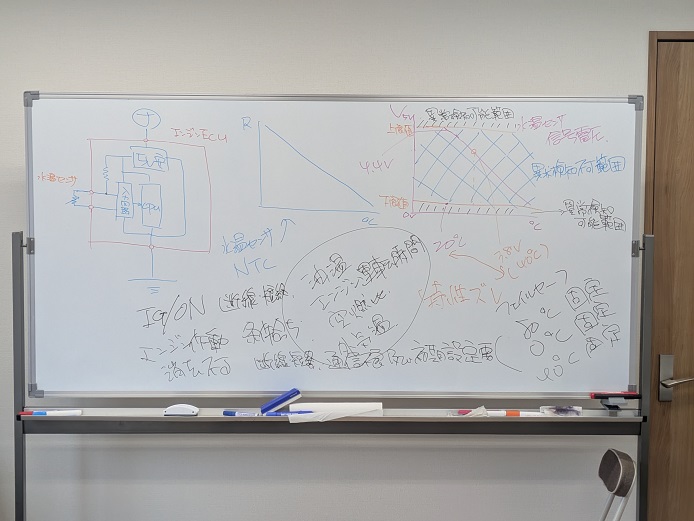 エンジンECU
5V
水温センサ
入力回路
CPU
R
℃
水温センサ
NTC
V
5V
異常検知可能範囲
水温センサ
信号電圧
上限値
4.4V
異常検知不可範囲
下限値
0
℃
異常検知
可能範囲
20℃
3.8V
(40℃)
特性ズレ
油温
エンジン運転時間
空燃比
外気温
IG/ON 断線 短絡
エンジン作動
消去不可 断線 短絡、通信
フェイルセーフ
80℃ 固定
0℃ 固定
固定